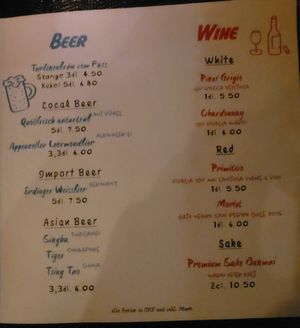 BEER
vom Fass
Stange 3dl. 4.50
Kübel 5dl. 6.80
Local Beer
Quöllfrisch unfiltriert
5dl. 7.50
Appenzeller
3,3dl 6.00
Import Beer
Erdinger Weissbier GERMANY
5dl. 7.50
Asian Beer
Singha THAILAND
Tiger SINGAPORE
Tsing Tao CHINA
3,3dl 6.00
WINE
White
Pinot Grigio
1dl. 5.50
Chardonnay
1dl 6.00
Red
Primitivo
1dl. 5.50
Merlot
1dl. 6.00
Sake
Premium Sake
2cl. 10.50
alle Preise in CHF und inkl. Mwst.